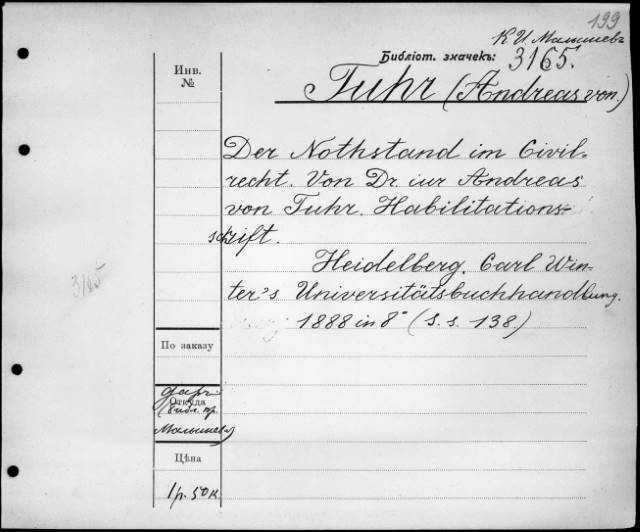 199
К И. Малышевъ
Библіот. значекъ: 3165.
Инв.
№
Tuhr (Andreas von.)
Der Nothstand im Civil-
recht. Von Dr. iur Andreas
von Tuhr. Habilitations-
schrift.
Heidelberg. Carl Win-
ter's Universitätsbuchhandlung.
1888 in 8° (S. s. 138.)
3165
По заказу
Откуда
даръ
(библ. пр.
Малышева)
Цѣна
1 р. 50 к.